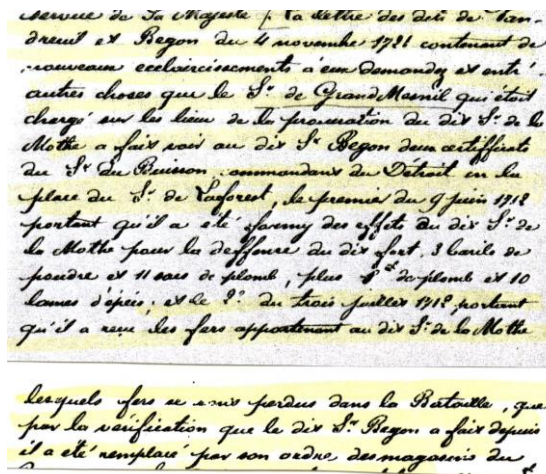 service de Sa Majesté, la lettre des dits de Vau-
dreuil et Begon du 4 novembre 1721 contenant de
nouveaux eclaircissements à eux demandez et entr'
autres choses que le Sr. de GrandMesnil qui étoit
chargé sur les lieux de la procuration du dit Sr. de la
Mothe a fait voir au dit Sr. Begon deux certifficats
du Sr. du Buisson, commandant du Détroit en la
place du Sr. de Laforest, le premier du 9 juin 1712
portant qu'il a été fourny des effets du dit Sr. de
la Mothe pour la deffense du dit fort, 3 barils de
poudre et 11 sacs de plomb, plus de plomb et 10
lames d'épées, et le 2e. du trois juillet 1712, portant
qu'il a reçu les fers appartenant au dit Sr. de la Mothe
lesquels fers se sont perdus dans la Batouille, que
par la vérification que le dit Sr. Begon a fait depuis
il a été remplacé par son ordre des magasins du